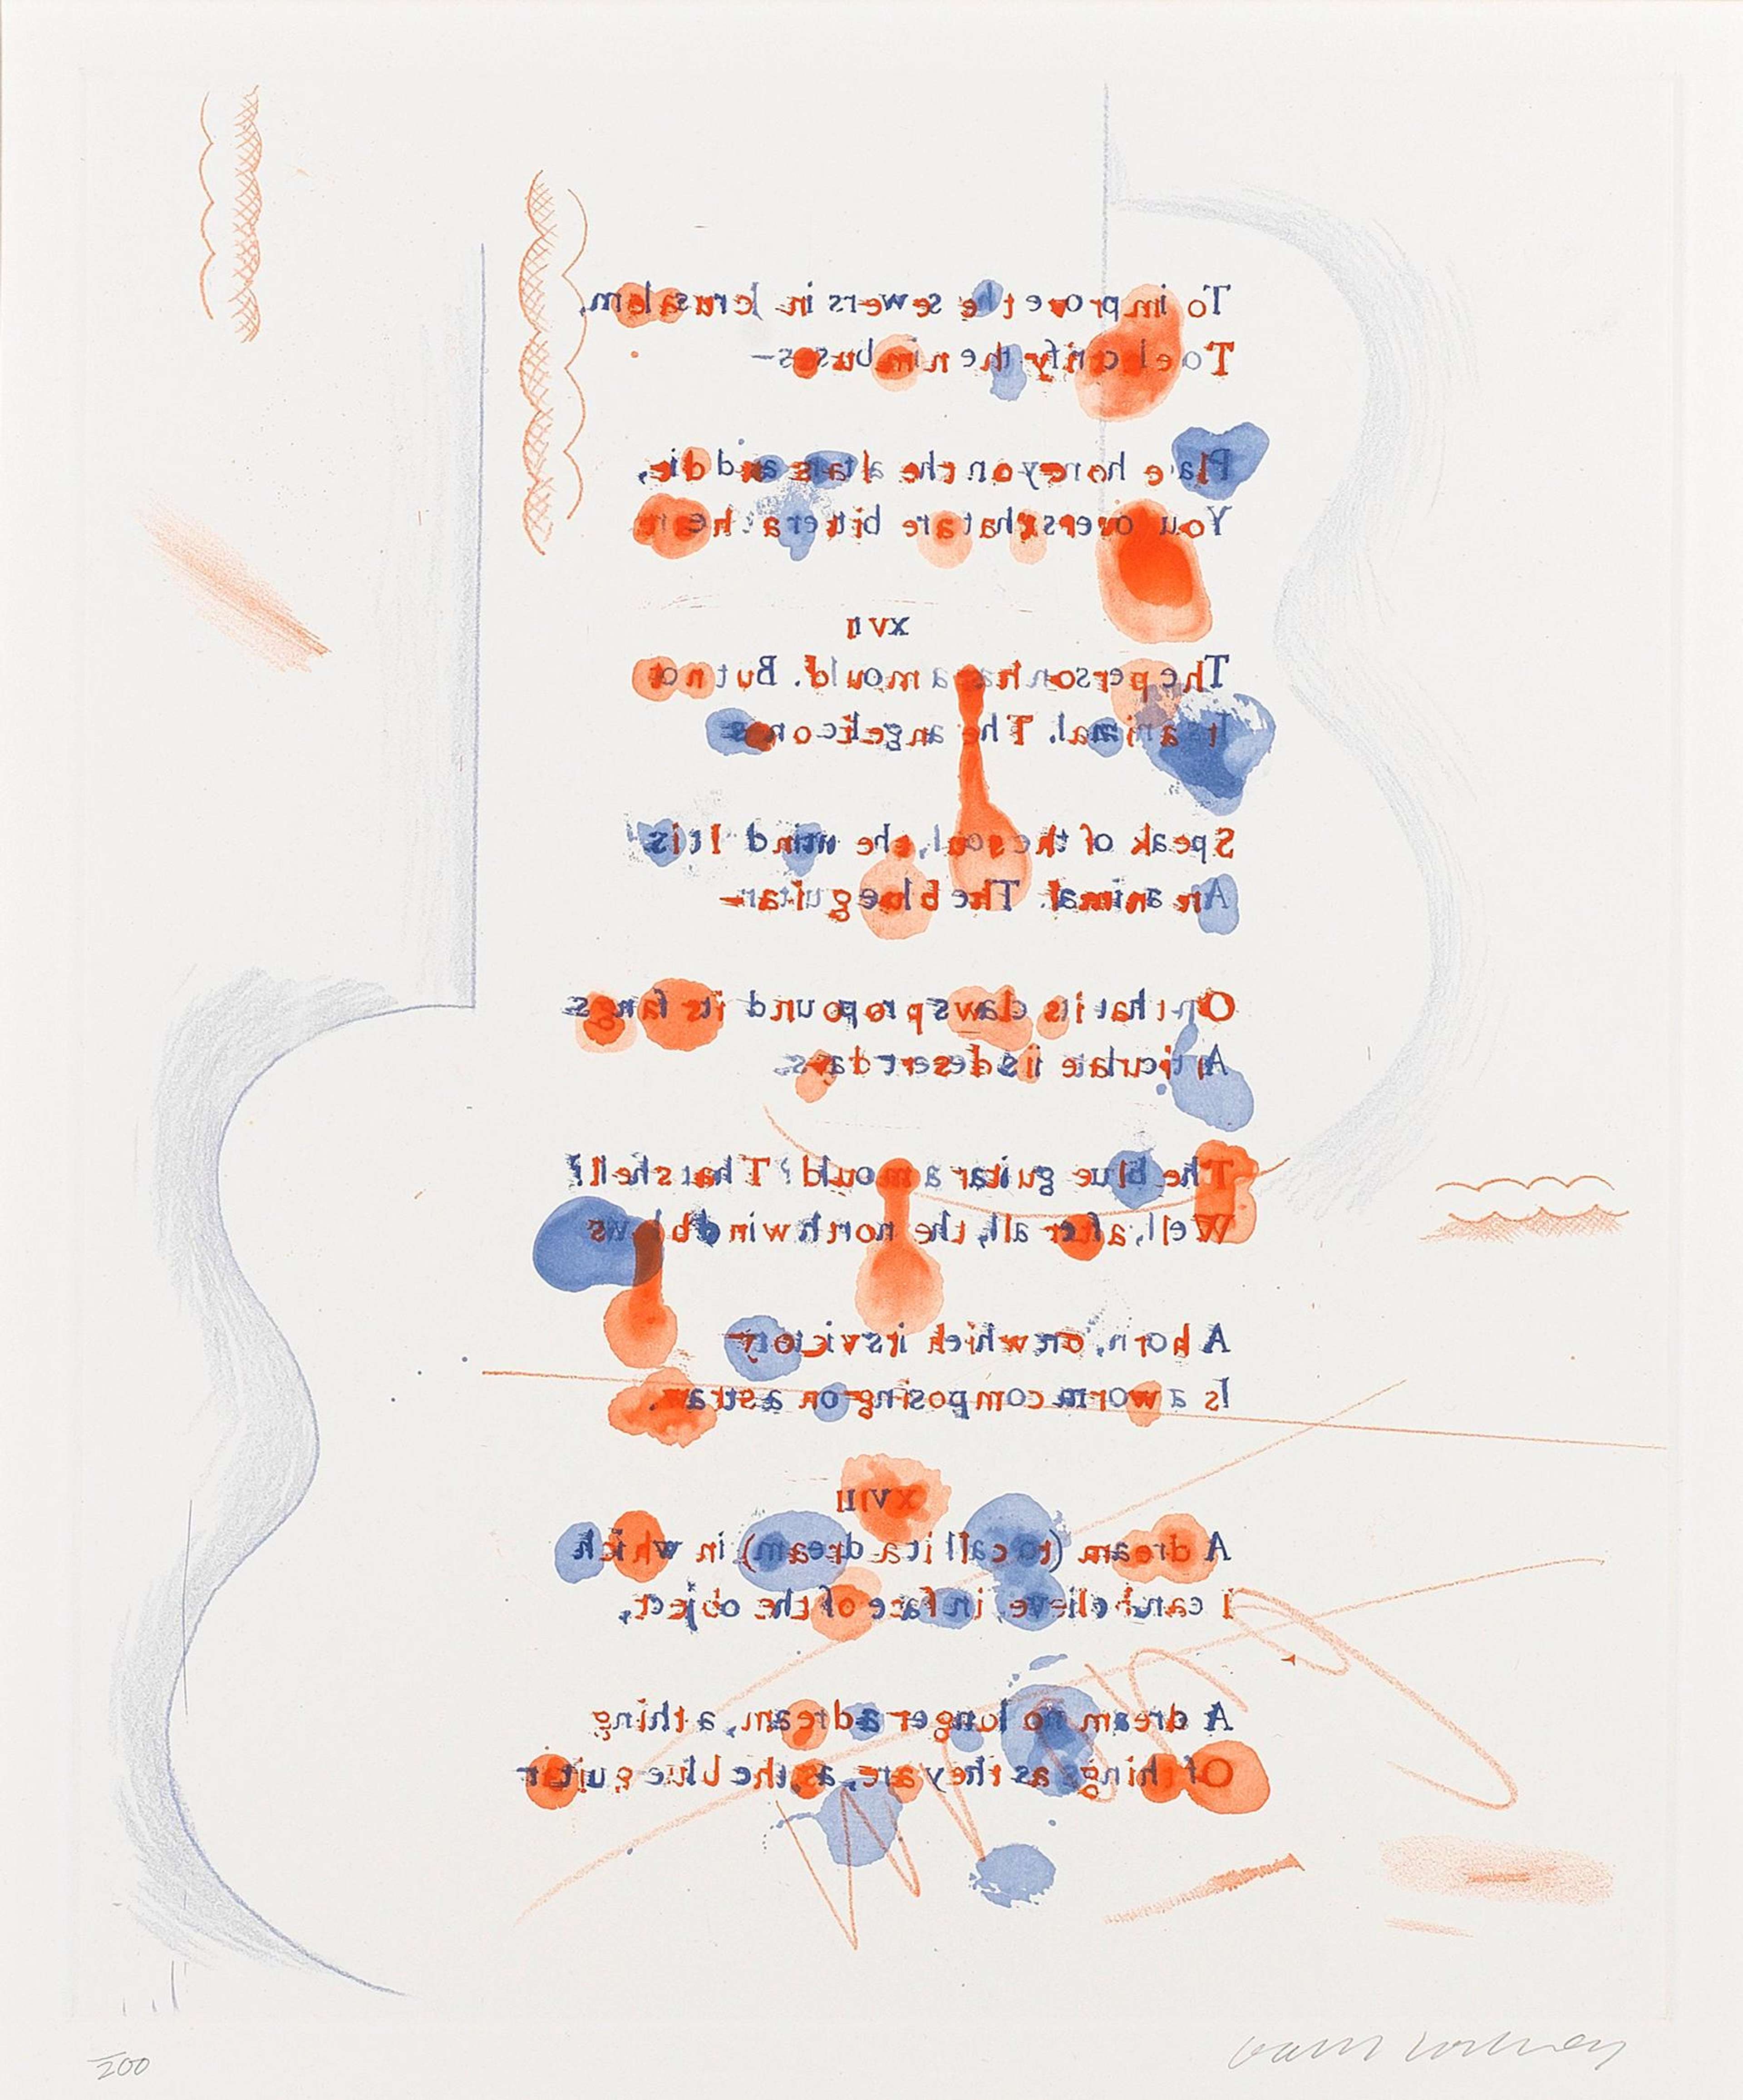 To improve the sewers in Jerusalem,
To electrify the nimbuses—
Place honey on the altars and die,
You lovers that are bitter at heart
XVII
The person has a mould. But not
Its animal. The angelic ones
Speak of the soul, the mind. It is
An animal. The blue guitar—
On that its claws propound its fangs
Articulate its desert days.
The blue guitar a mould? That shell?
Well, after all, the north wind blows
A horn, on which its victory
Is a worm composing on a straw.
XVIII
A dream (to call it a dream) in which
I can believe, in face of the object,
A dream no longer a dream, a thing
Of things as they are, as the blue guitar
/200